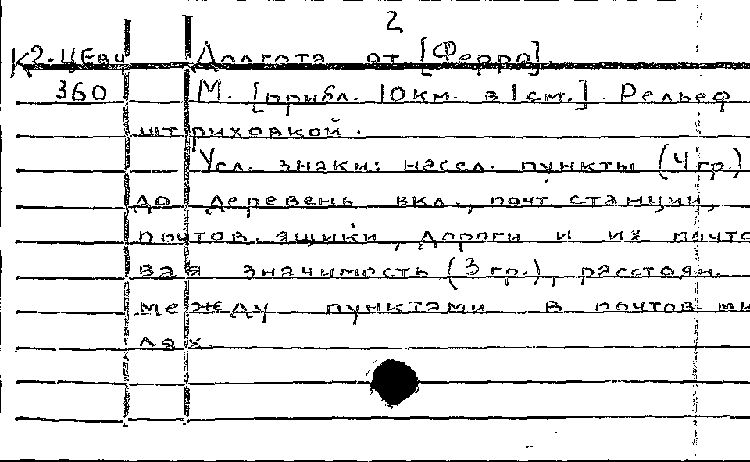 2
К2-ЦЕвч Долгота от [Ферро].
360 М. [прибл. 10км. в 1см.]. Рельеф
штриховкой.
Усл. знаки: насел. пункты (4 гр.)
до деревень вкл., почт. станции,
почтов. ящики, дороги и их почто
вая значимость (3 гр.), расстоян.
между пунктами в почтов. ми
лях.